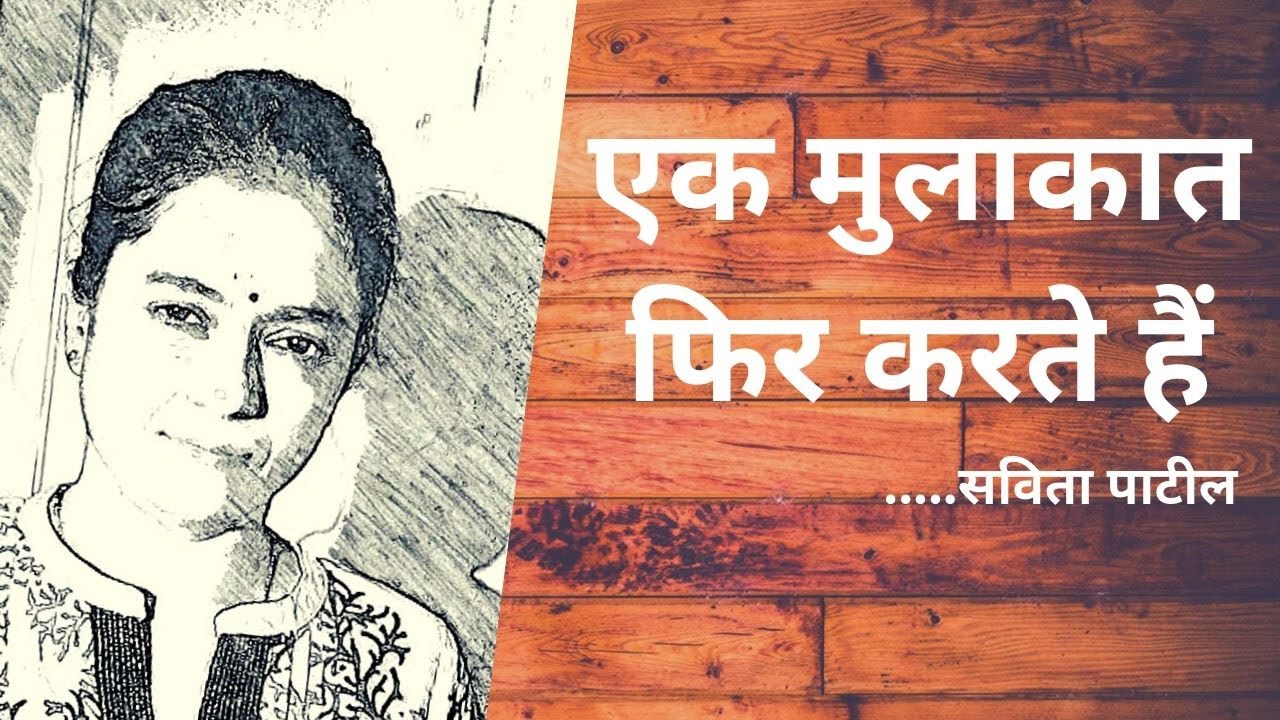 एक मुलाकात
फिर करते हैं
.....सविता पाटील